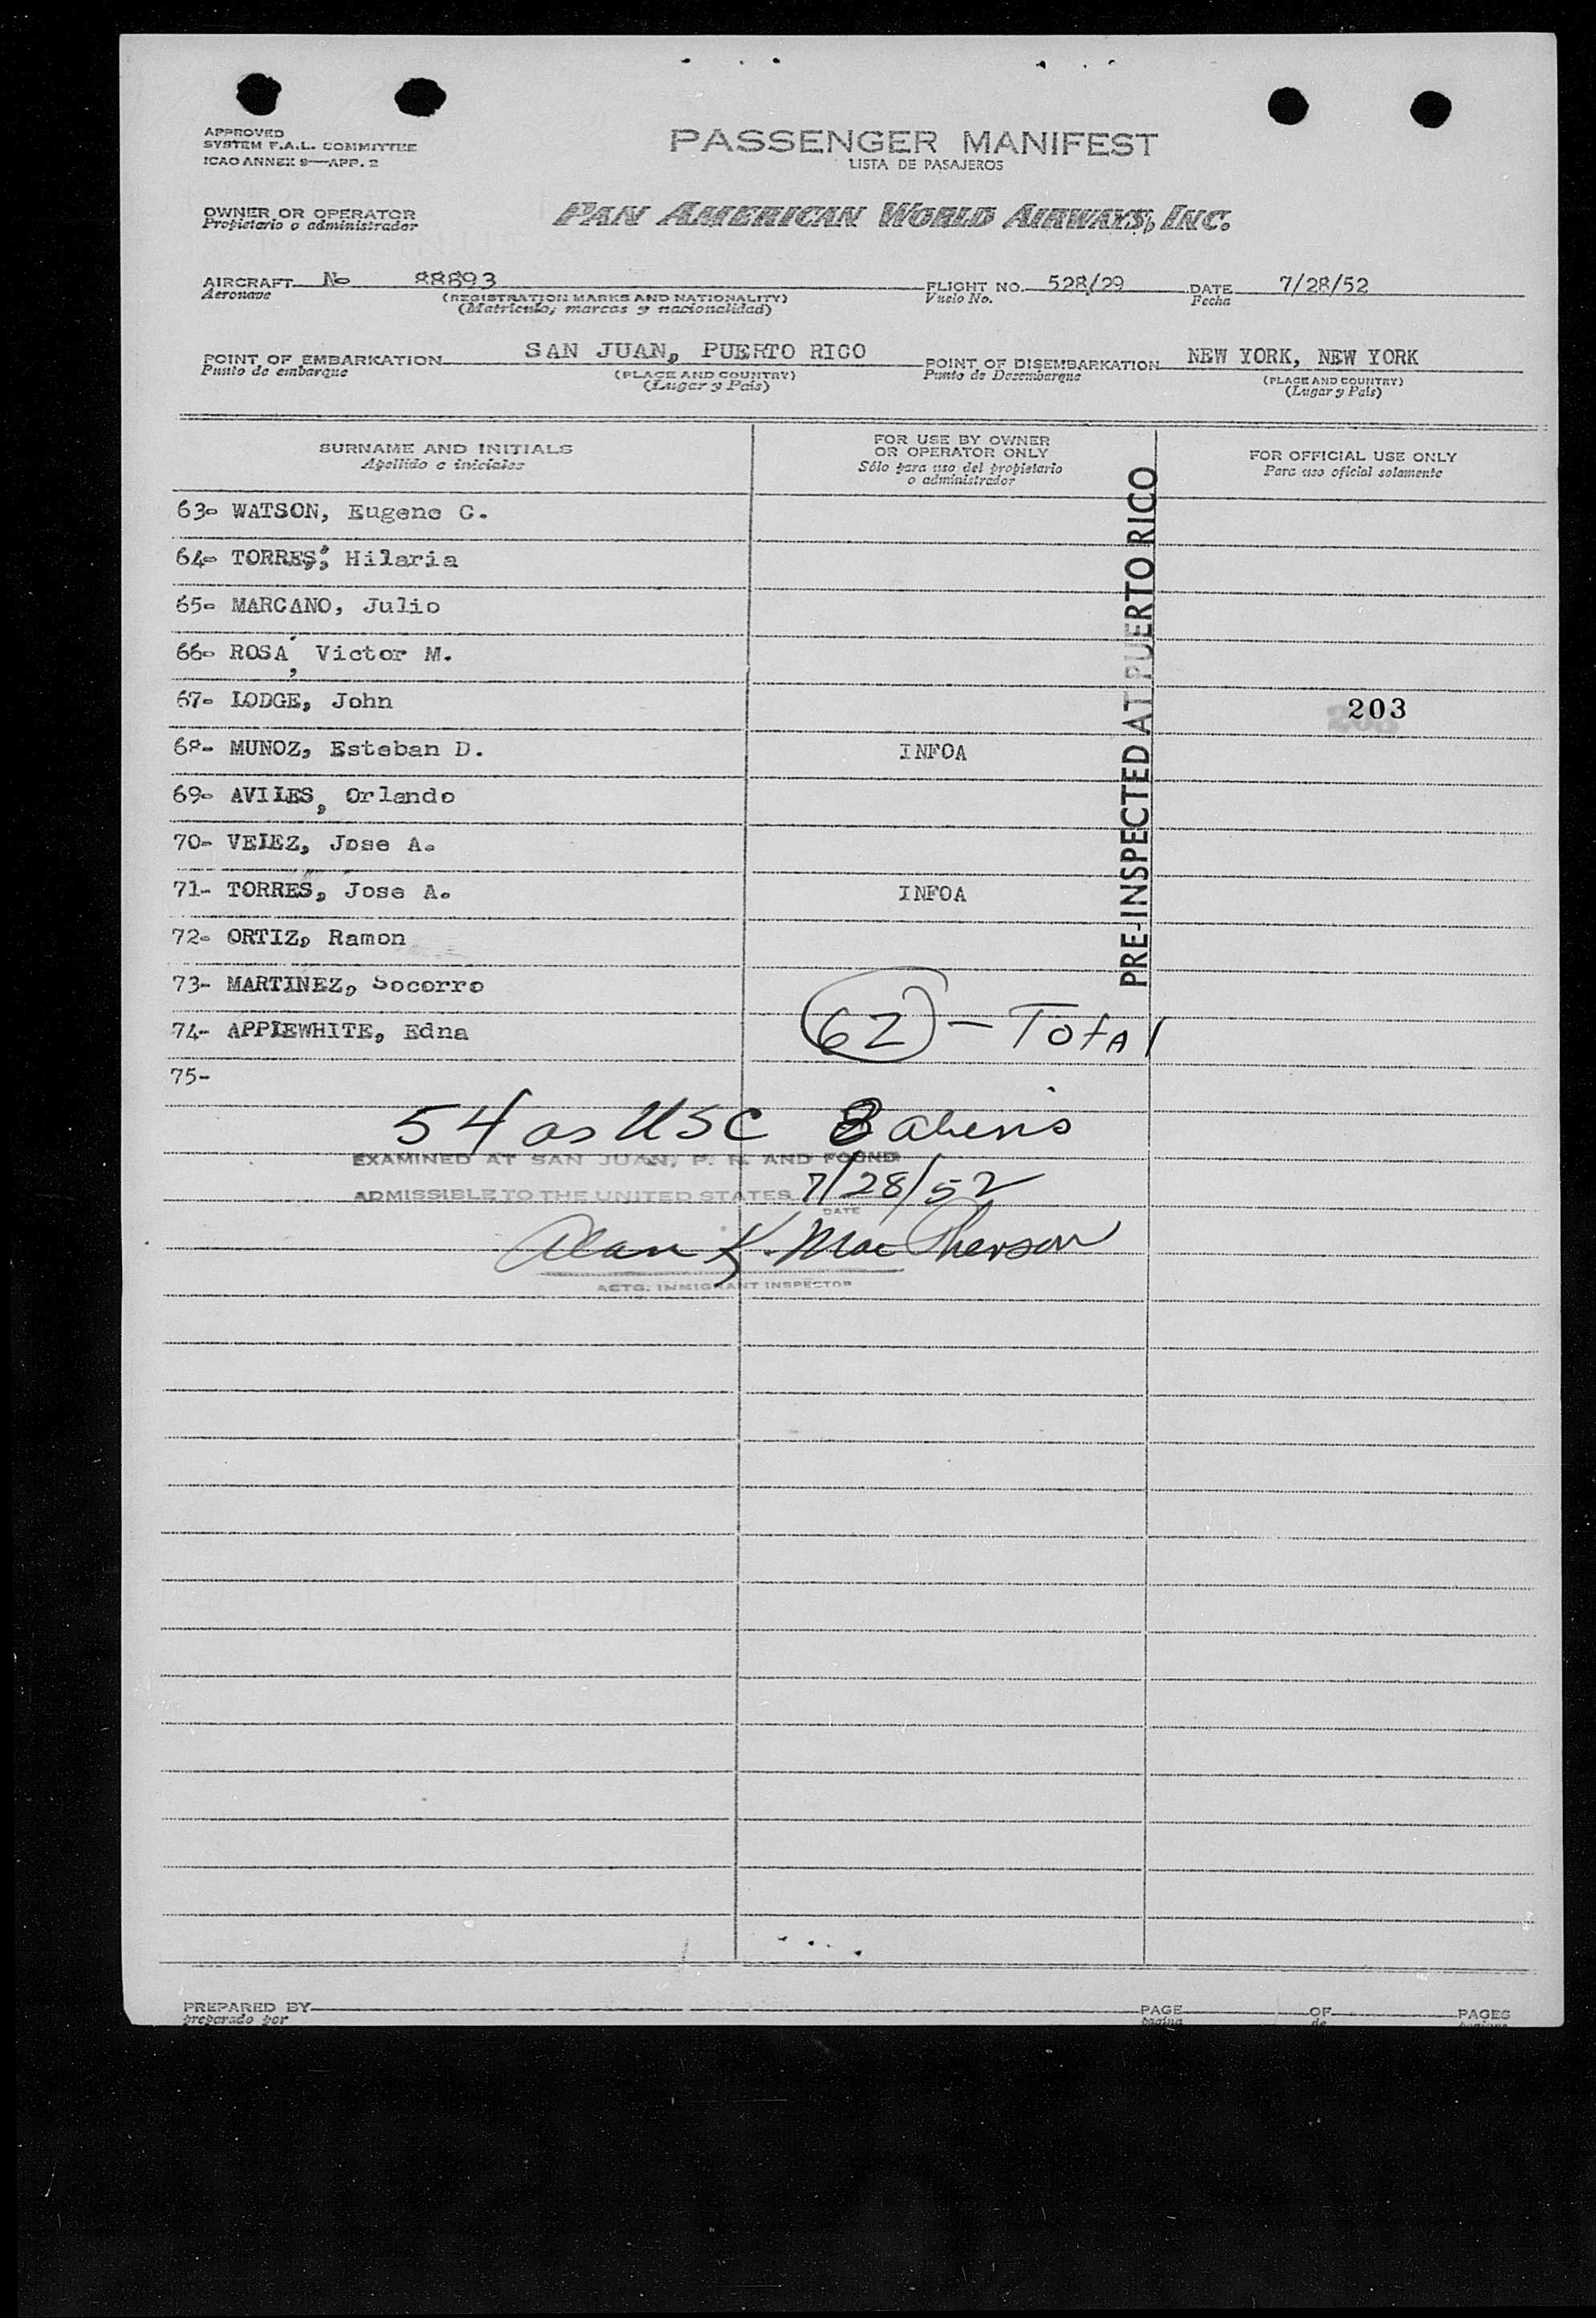 APPROVED
SYSTEM F.A.L. COMMITTEE
ICAO ANNEX 9—APP. 2
PASSENGER MANIFEST
LISTA DE PASAJEROS
OWNER OR OPERATOR
Propietario o administrador
PAN AMERICAN WORLD AIRWAYS, INC.
AIRCRAFT No 88893
Aeronave
(REGISTRATION MARKS AND NATIONALITY)
(Matricula, marcas y nacionalidad)
FLIGHT NO. 528/29
Vuelo No.
DATE 7/28/52
Fecha
POINT OF EMBARKATION SAN JUAN, PUERTO RICO
Punto de embarque
(PLACE AND COUNTRY)
(Lugar y Pais)
POINT OF DISEMBARKATION NEW YORK, NEW YORK
Punto de Desembarque
(PLACE AND COUNTRY)
(Lugar y Pais)
SURNAME AND INITIALS
Apellido e iniciales
FOR USE BY OWNER
OR OPERATOR ONLY
Sólo para uso del propietario
o administrador
FOR OFFICIAL USE ONLY
Para uso oficial solamente
63- WATSON, Eugene C.
64- TORRES, Hilaria
65- MARCANO, Julio
66- ROSA, Victor M.
67- LODGE, John
203
68- MUNOZ, Esteban D. INFOA
69- AVILES, Orlando
70- VELEZ, Jose A.
71- TORRES, Jose A. INFOA
72- ORTIZ, Ramon
73- MARTINEZ, Socorro
74- APPLEWHITE, Edna
75-
PRE-INSPECTED AT PUERTO RICO
62 - Total
54 as USC 8 aliens
EXAMINED AT SAN JUAN, P. R. AND FOUND
ADMISSIBLE TO THE UNITED STATES 7/28/52
DATE
Alan K. MacPherson
ACTG. IMMIGRANT INSPECTOR
PREPARED BY
preparado por
PAGE OF PAGES
pagina de